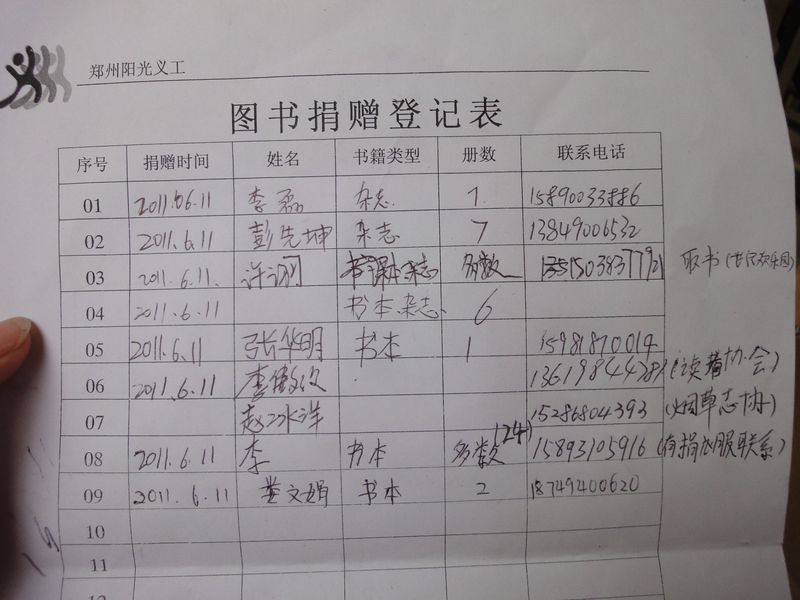 郑州阳光义工
图书捐赠登记表
序号 捐赠时间 姓名 书籍类型 册数 联系电话
01 2011.06.11 李磊 杂志 1 15890033886
02 2011.6.11 彭先坤 杂志 7 13849006532
03 2011.6.11. 许 书 课本 杂志 多数 15038377921 取书(世纪欢乐园)
04 2011.6.11 书本.杂志 6
05 2011.6.11 张华明 书本 1 15981870014
06 2011.6.11 李 (读者协会)
07 赵冰洋 15286804393 (烟草志协)
08 2011.6.11 李 书本 多数(24) 15893105916 (有捐衣服联系)
09 2011.6.11 黄文娟 书本 2 18749400620
10
11
12